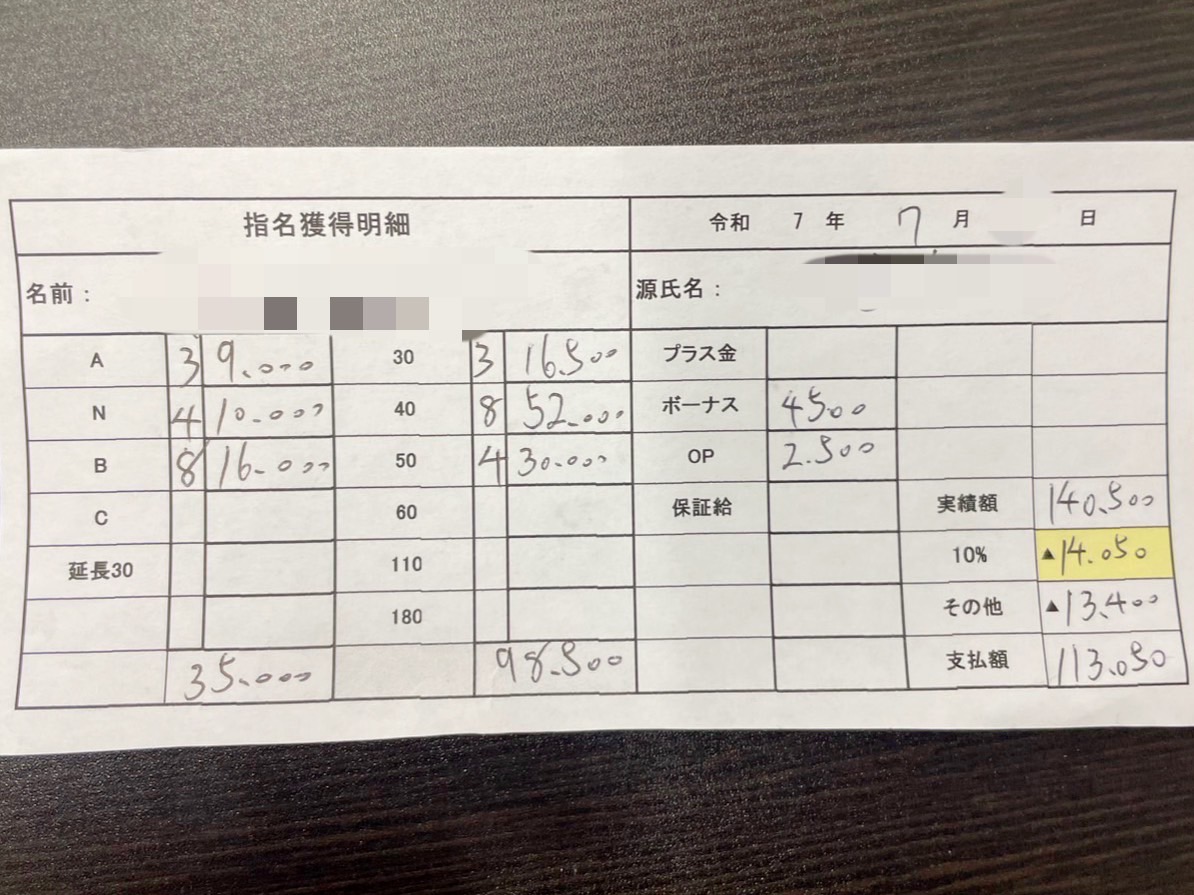 指名獲得明細 令和 7 年 7 月 日
名前： 源氏名：
A 3 9.000 30 3 16.500 プラス金
N 4 10.000 40 8 52.000 ボーナス 4500
B 8 16.000 50 4 30.000 OP 2.500
C 60 保証給 実績額 140.500
延長30 110 10% ▲14.050
180 その他 ▲13.400
35.000 98.500 支払額 113.050